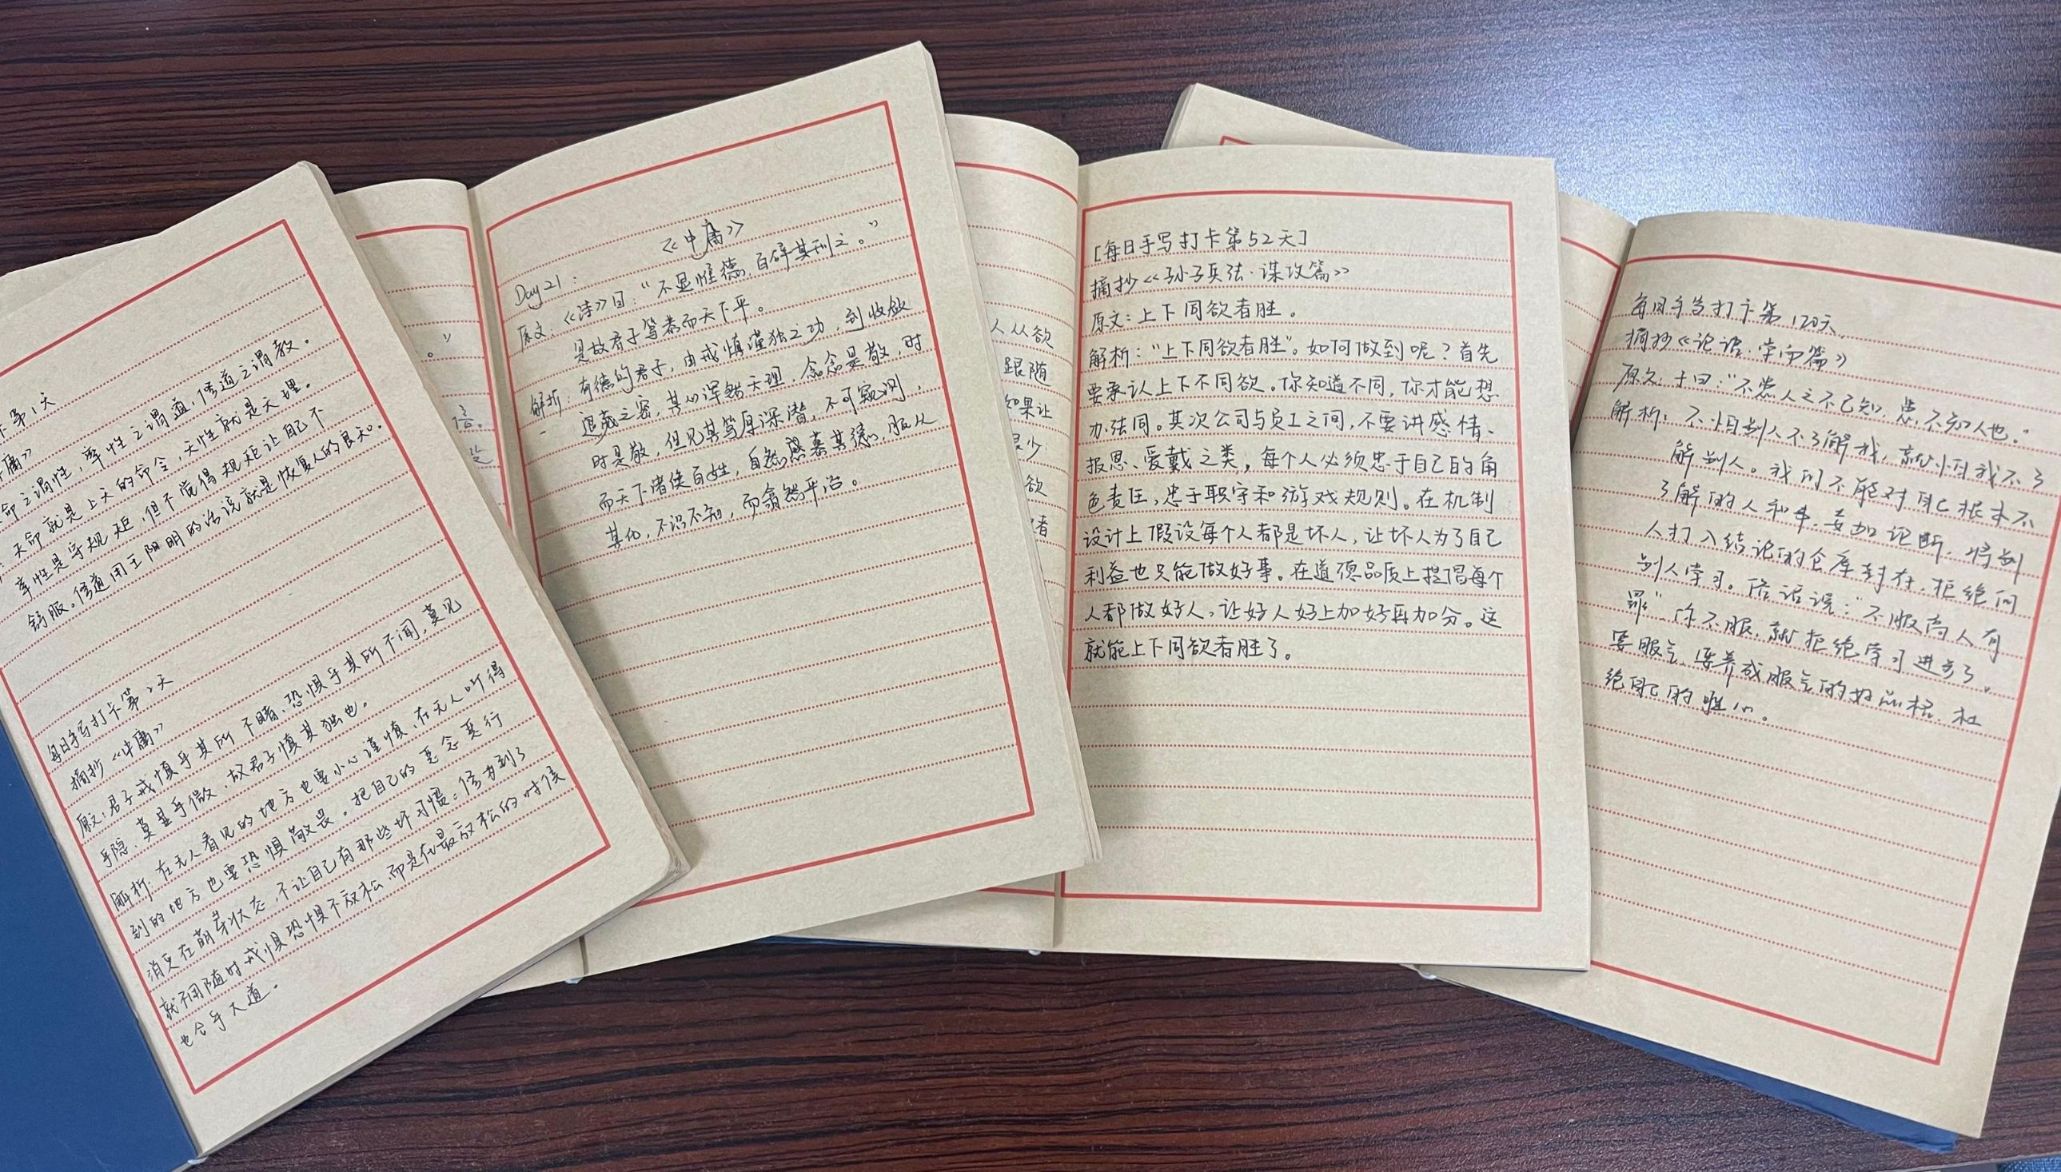 卡第1天
庸》
命之谓性，率性之谓道，修道之谓教。
天命就是上天的命令，天性就是天理。
率性是守规矩，但不觉得规矩让自己不
舒服。修道用王阳明的话说就是恢复人的良知。
每日手写打卡第2天
摘抄《中庸》
原文：君子戒慎乎其所不睹，恐惧乎其所不闻，莫见
乎隐，莫显乎微，故君子慎其独也。
解析：在无人看见的地方也要小心谨慎，在无人听得
到的地方也要恐惧敬畏。把自己的恶念恶行
消灭在萌芽状态，不让自己有那些坏习惯。修为到了
就不用随时戒慎恐惧不放松，而是在最放松的时候
也合乎大道。
。”
信。
《中庸》
Day21：
原文：《诗》曰：“不显惟德，百辟其刑之。”
是故君子笃恭而天下平。
解析：有德的君子，由戒慎谨独之功，到收敛
退藏之密，其心浑然天理，念念是敬，时
时是敬，但见其笃厚深潜，不可窥测，
而天下诸侯百姓，自然感慕其德，服从
其化，不识不知，而翕然平治。
人从欲
跟随
如果让
很少
欲
者
[每日手写打卡第52天]
摘抄《孙子兵法·谋攻篇》
原文：上下同欲者胜。
解析：“上下同欲者胜”。如何做到呢？首先
要承认上下不同欲。你知道不同，你才能想
办法同。其次公司与员工之间，不要讲感情、
报恩、爱戴之类，每个人必须忠于自己的角
色责任，忠于职守和游戏规则。在机制
设计上假设每个人都是坏人，让坏人为了自己
利益也只能做好事。在道德品质上提倡每个
人都做好人，让好人好上加好再加分。这
就能上下同欲者胜了。
每日手写打卡第120天
摘抄《论语·学而篇》
原文：子曰：“不患人之不己知，患不知人也。”
解析：不怕别人不了解我，就怕我不了
解别人。我们不能对自己根本不
了解的人和事，妄加论断，将别
人打入结论的仓库封存，拒绝向
别人学习。俗话说：“不服高人有
罪”你不服，就拒绝学习进步了。
要服气，保养成服气的好品格，杜
绝自己的胜心。